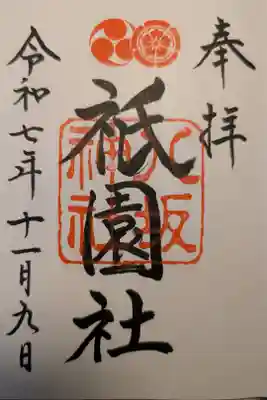 奉拝
祇園社
八阪
神社
令和七年十一月九日